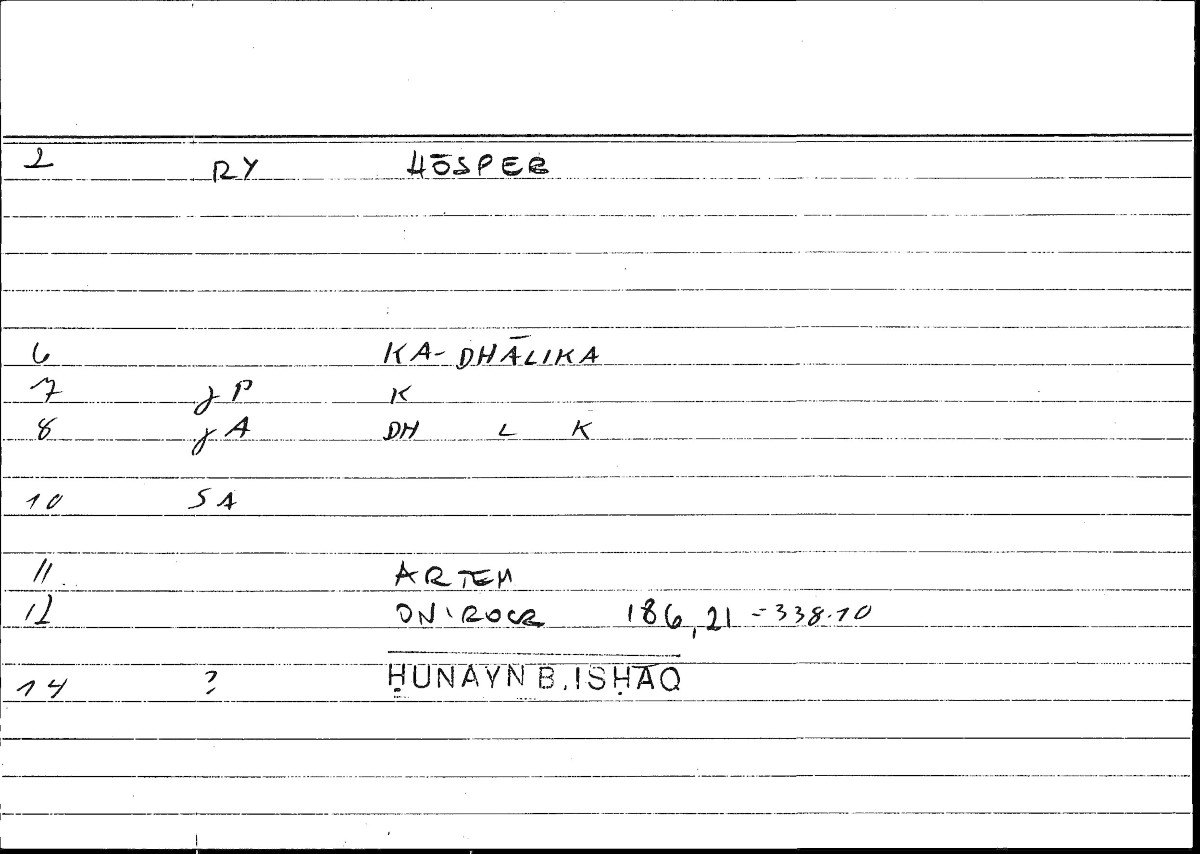 2 RY HŌSPER
6 KA-DHĀLIKA
7 γP K
8 γA DH L K
10 SA
11 ARTEM
12 ONIROCR 186,21 = 338.10
14 ? ḤUNAYN B. ISḤĀQ